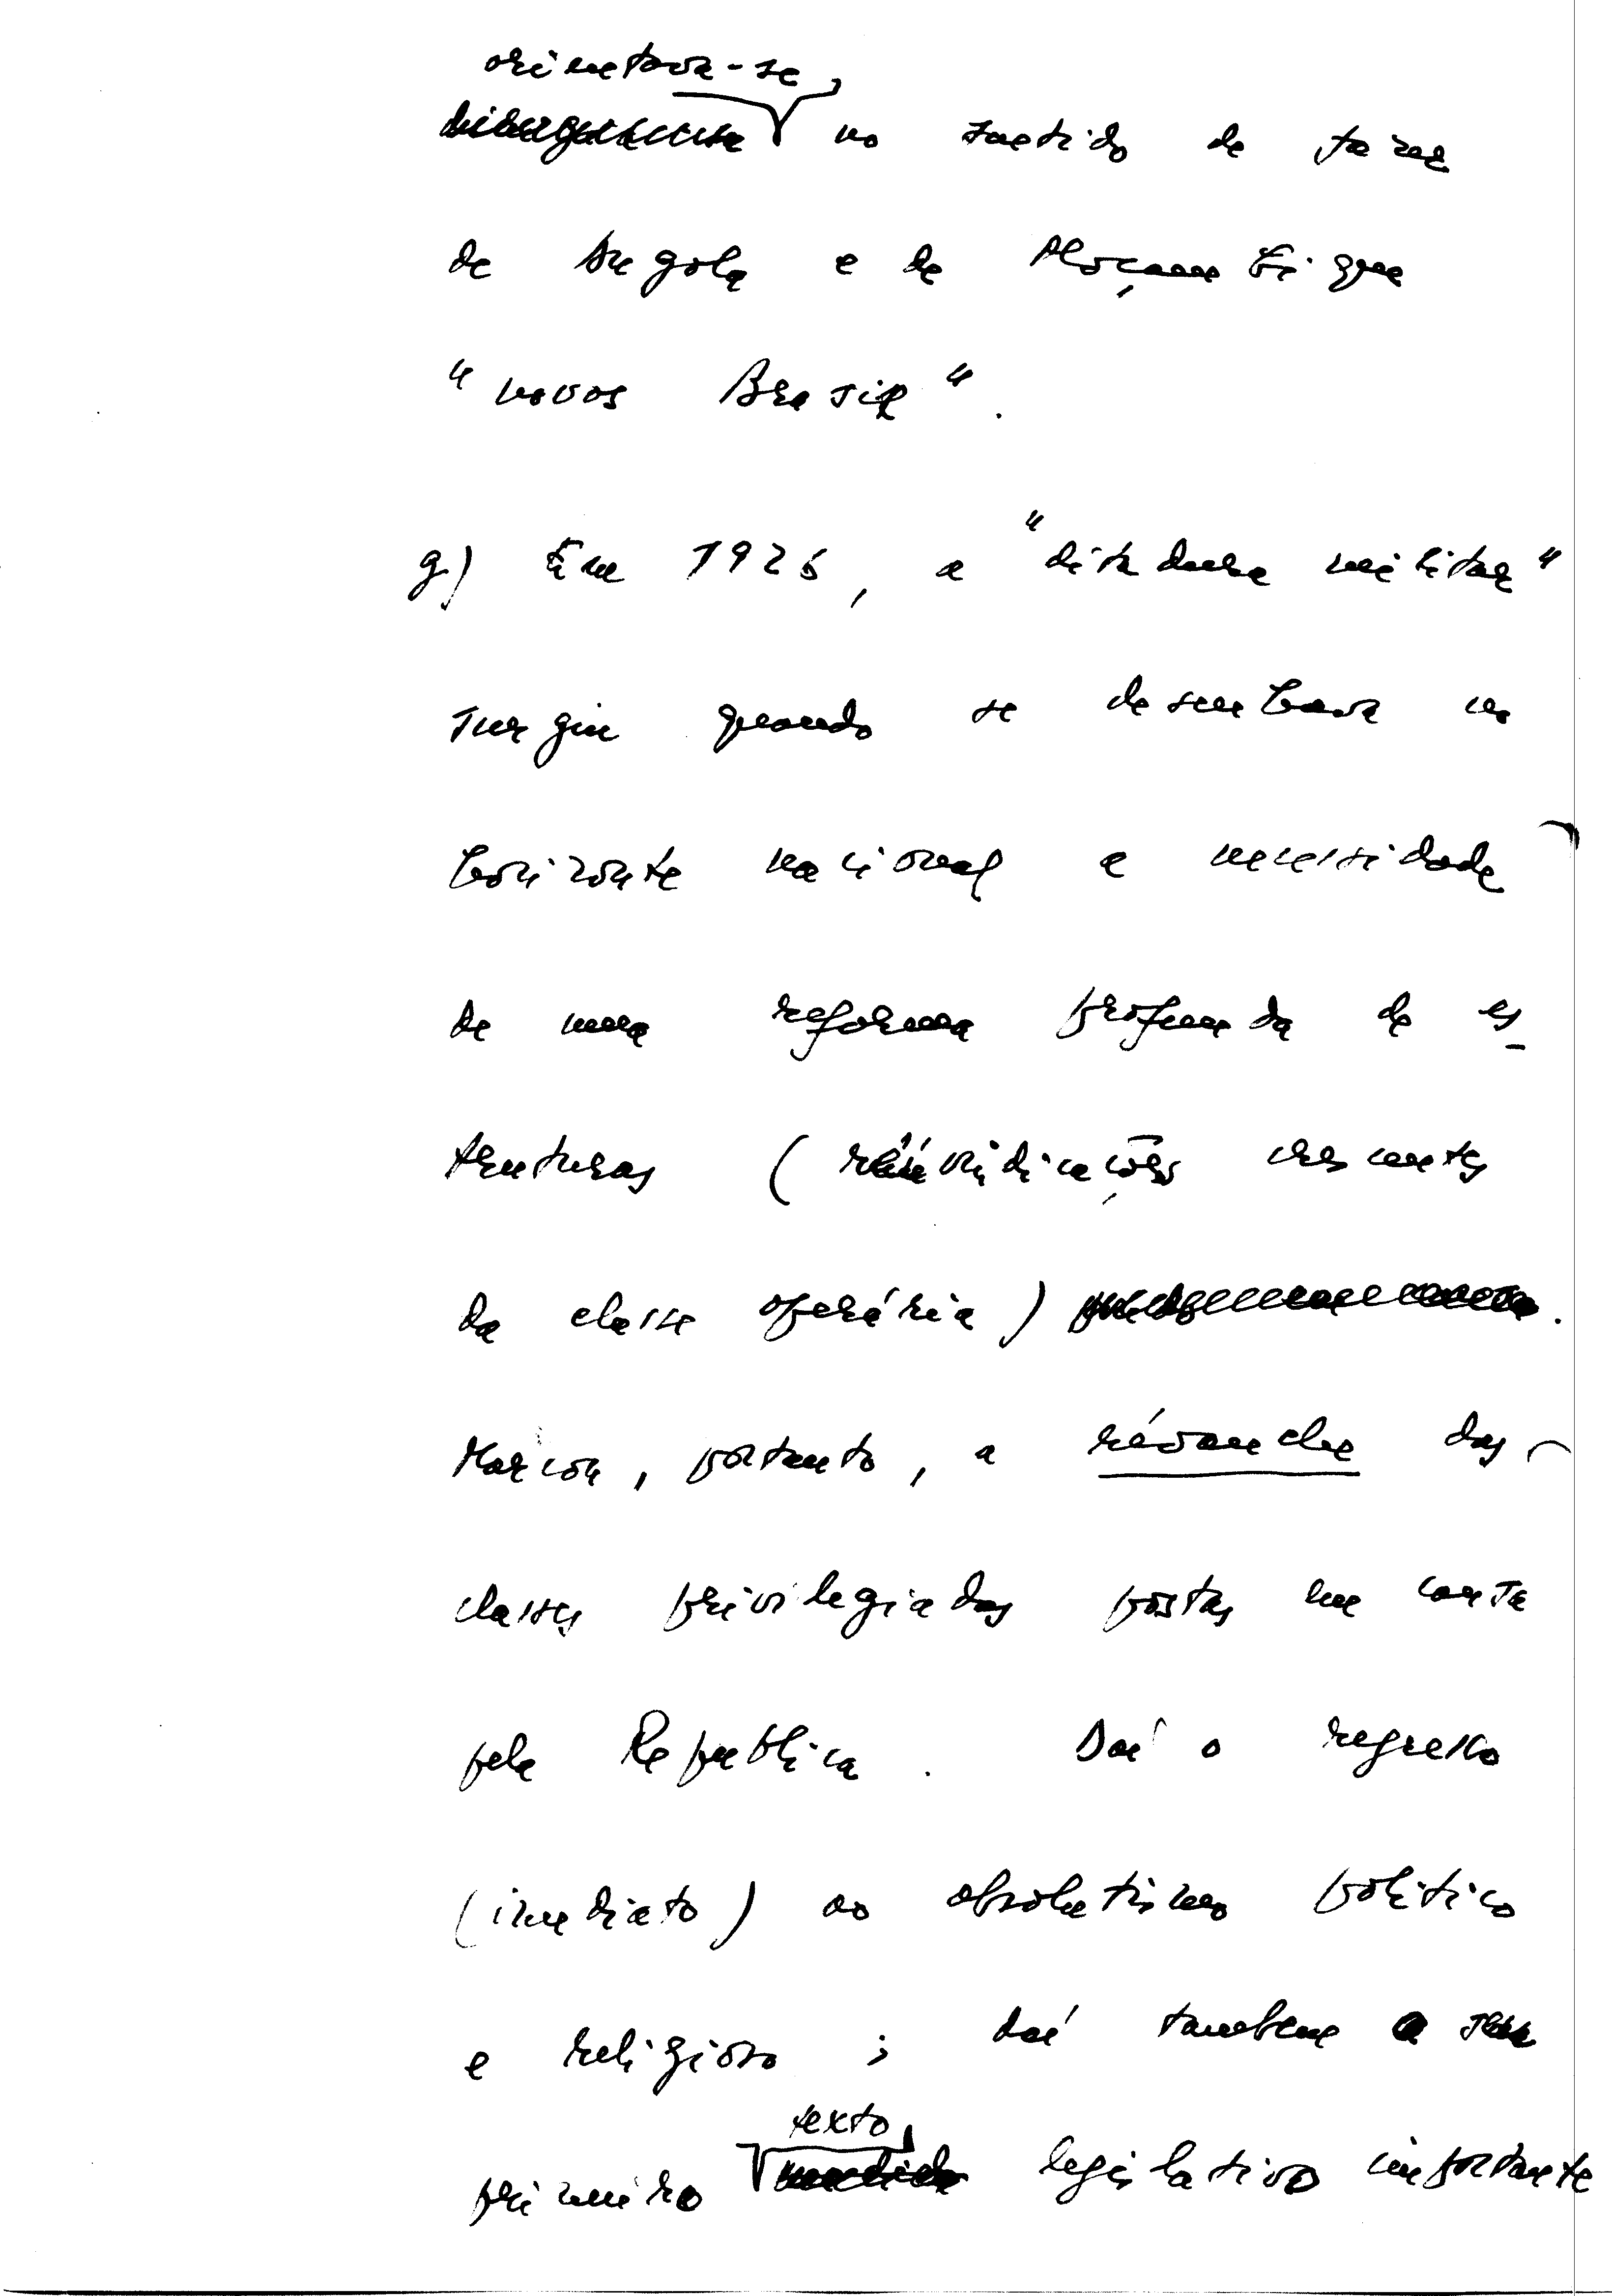 orientava-se,
no sentido de fazer
de Angola e de Moçambique
"novos Brasis".
g) Em 1926, a "ditadura militar"
surgiu quando se desenhava no
horizonte nacional a necessidade
de uma reforma profunda de es-
truturas (reivindicações crescentes
da classe operária).
Marcou, portanto, a révanche das
classes privilegiadas postas em causa
pela República. Daí o regresso
(imediato) ao absolutismo político
e religioso; daí também o seu
texto
primeiro legislativo importante